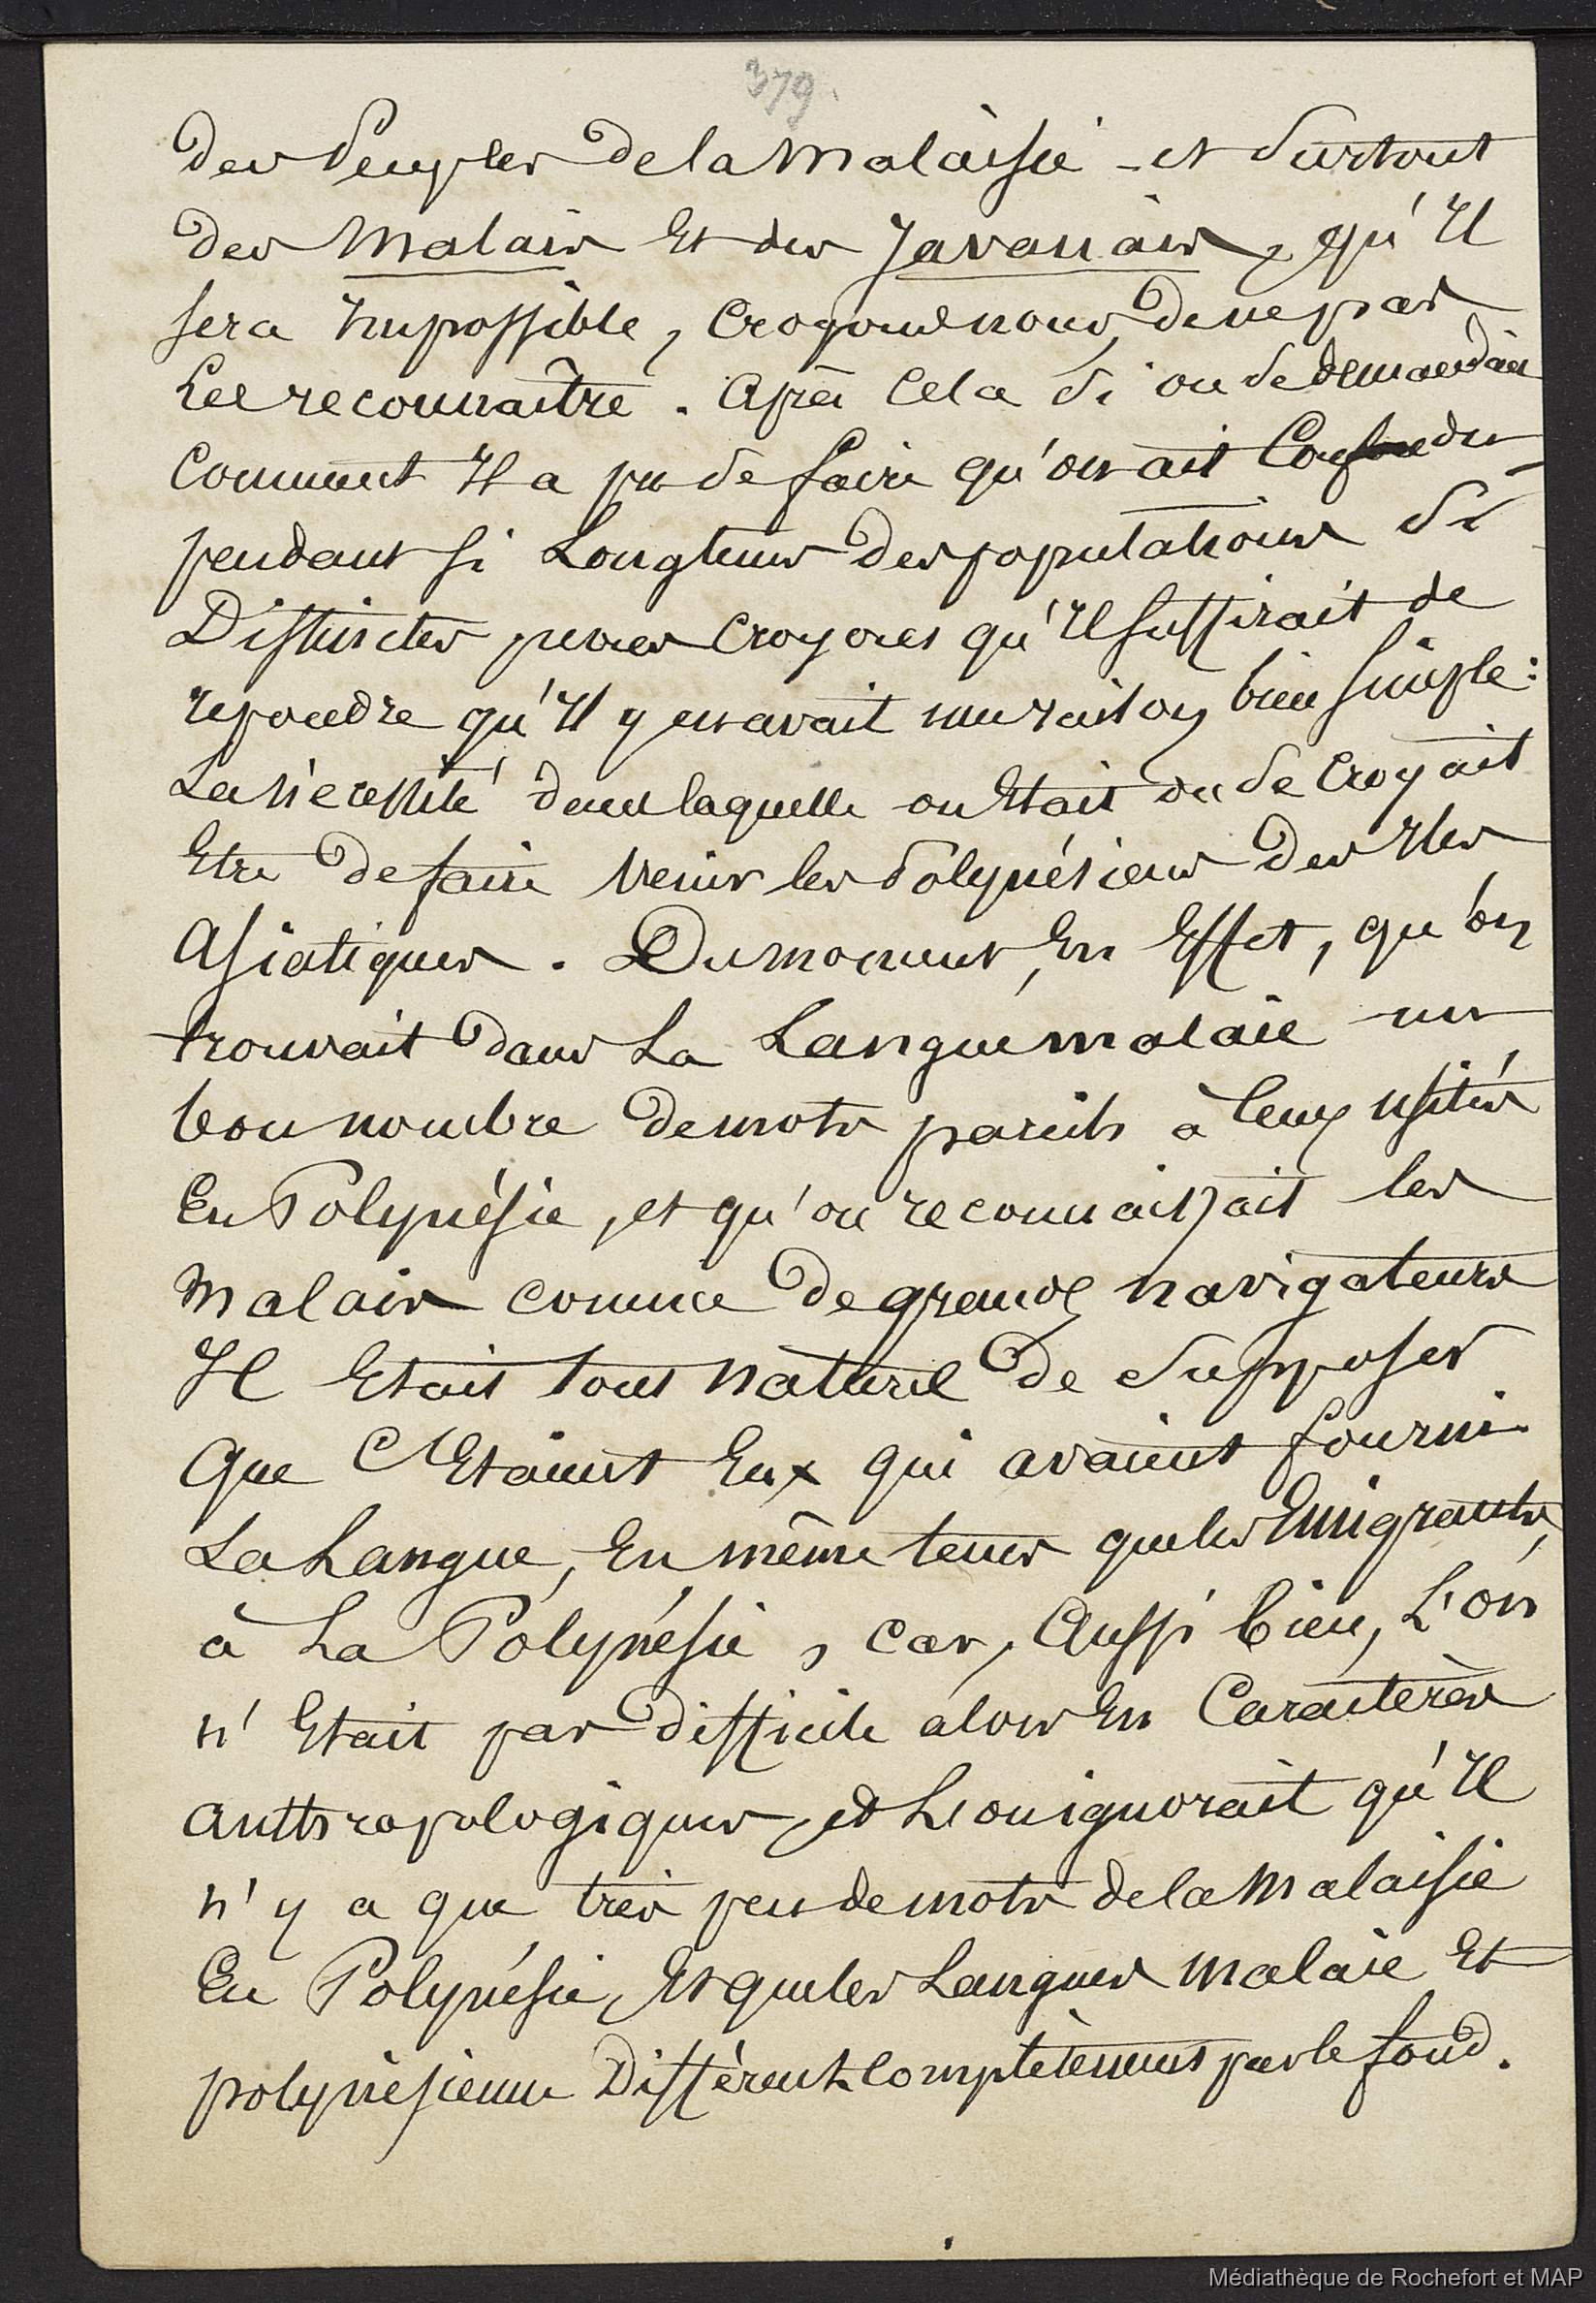 379.
des Peuples de la Malaisie - et Surtout
des Malais Et des Javanais, qu'Il
sera Impossible, Croyons nous, de ne pas
Les reconnaître. Après Cela Si on se demandait
Comment Il a pu se faire qu'on ait Confondu
pendant si Longtems des populations Si
Distinctes nous Croyons qu'Il suffirait de
repondre qu'Il y en avait une raison bien simple:
La nécessité dans laquelle on Etait ou se Croyait
Etre de faire Venir les Polynésiens des Iles
Asiatiques. Du moment, En Effet, qu'on
trouvait dans La Langue malaie un
bon nombre de mots pareils à Ceux usités
En Polynésie, et qu'on reconnaissait les
Malais comme de grands navigateurs
Il Etait tout naturel de Supposer
Que C'Etaient Eux qui avaient fourni
La Langue, En même tems que les Emigrants,
à La Polynésie, car, Aussi bien, L'on
n'Etait pas difficile alors En Caractères
anthropologiques, et L'on ignorait qu'Il
n'y a que très peu de mots de la Malaisie
En Polynésie, Et que les Langues Malaie Et
polynésienne Diffèrent Complètement par le fond.
Médiathèque de Rochefort et MAP